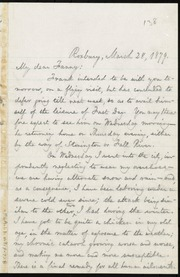 Roxbury, March 28, 1879.
My dear Fanny:
Frank intended to be with you to-
morrow, on a flying visit, but has concluded to
defer going till next week, so as to avail himself
of the leisure of Fast Day. You may there-
fore expect to see him on Wednesday morning—
he returning home on Thursday evening, either
by the way of Stonington or Fall River.
On Wednesday I went into the city, im-
prudently neglecting to wear my overshoes—
we are having alternate snow and rain—and
as a consequence, I have been laboring under a
severe cold ever since; the attack being sim-
ilar to the other I had during the winter.
I have got to be quite a chicken in my old
age, in the matter of exposure to the weather,
my chronic catarrh growing worse and worse,
and making me more and more susceptible.
There is a final remedy for all human ailments.